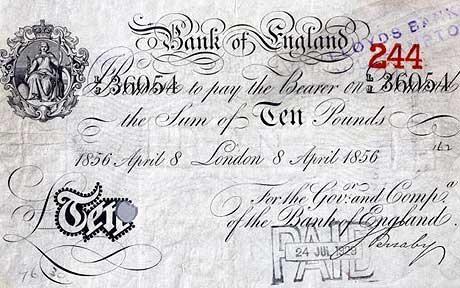 Bank of England
LLOYDS BANK
244
36054 36054
Promise to pay the Bearer on
the Sum of Ten Pounds
1856 April 8 London 8 April 1856
For the Gov.r and Comp.a
of the Bank of England.
Ten
PAID
24 JUL 1929